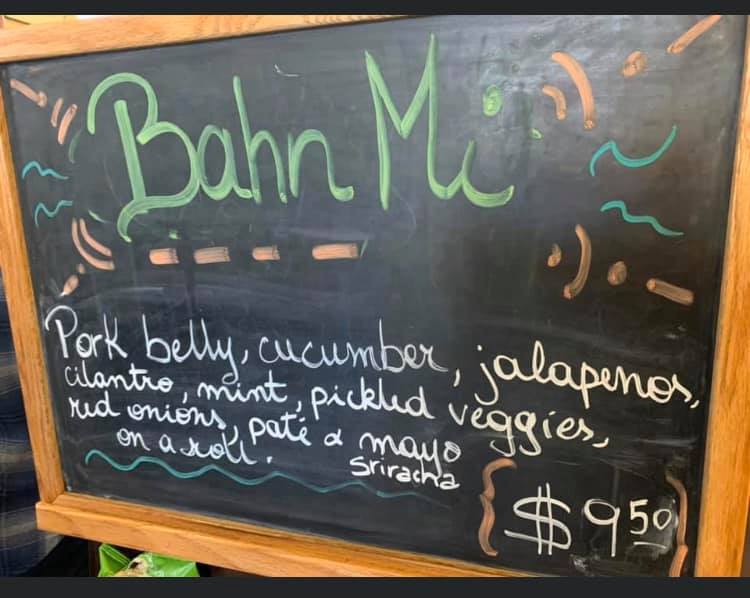 Bahn Mi
Pork belly, cucumber, jalapenos,
cilantro, mint, pickled veggies,
red onions, paté & mayo
on a roll. Sriracha
$9.50